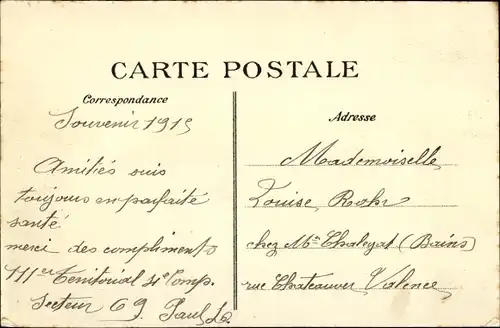 CARTE POSTALE
Correspondance
Souvenir 1915
Amitiés suis
toujours en parfaite
santé
merci des compliments
111er Territorial 4e Comp.
Secteur 69 Paul L.
Adresse
Mademoiselle
Louise Rohr
chez Mme Chaleyat (Bains)
rue Chateauver Valence